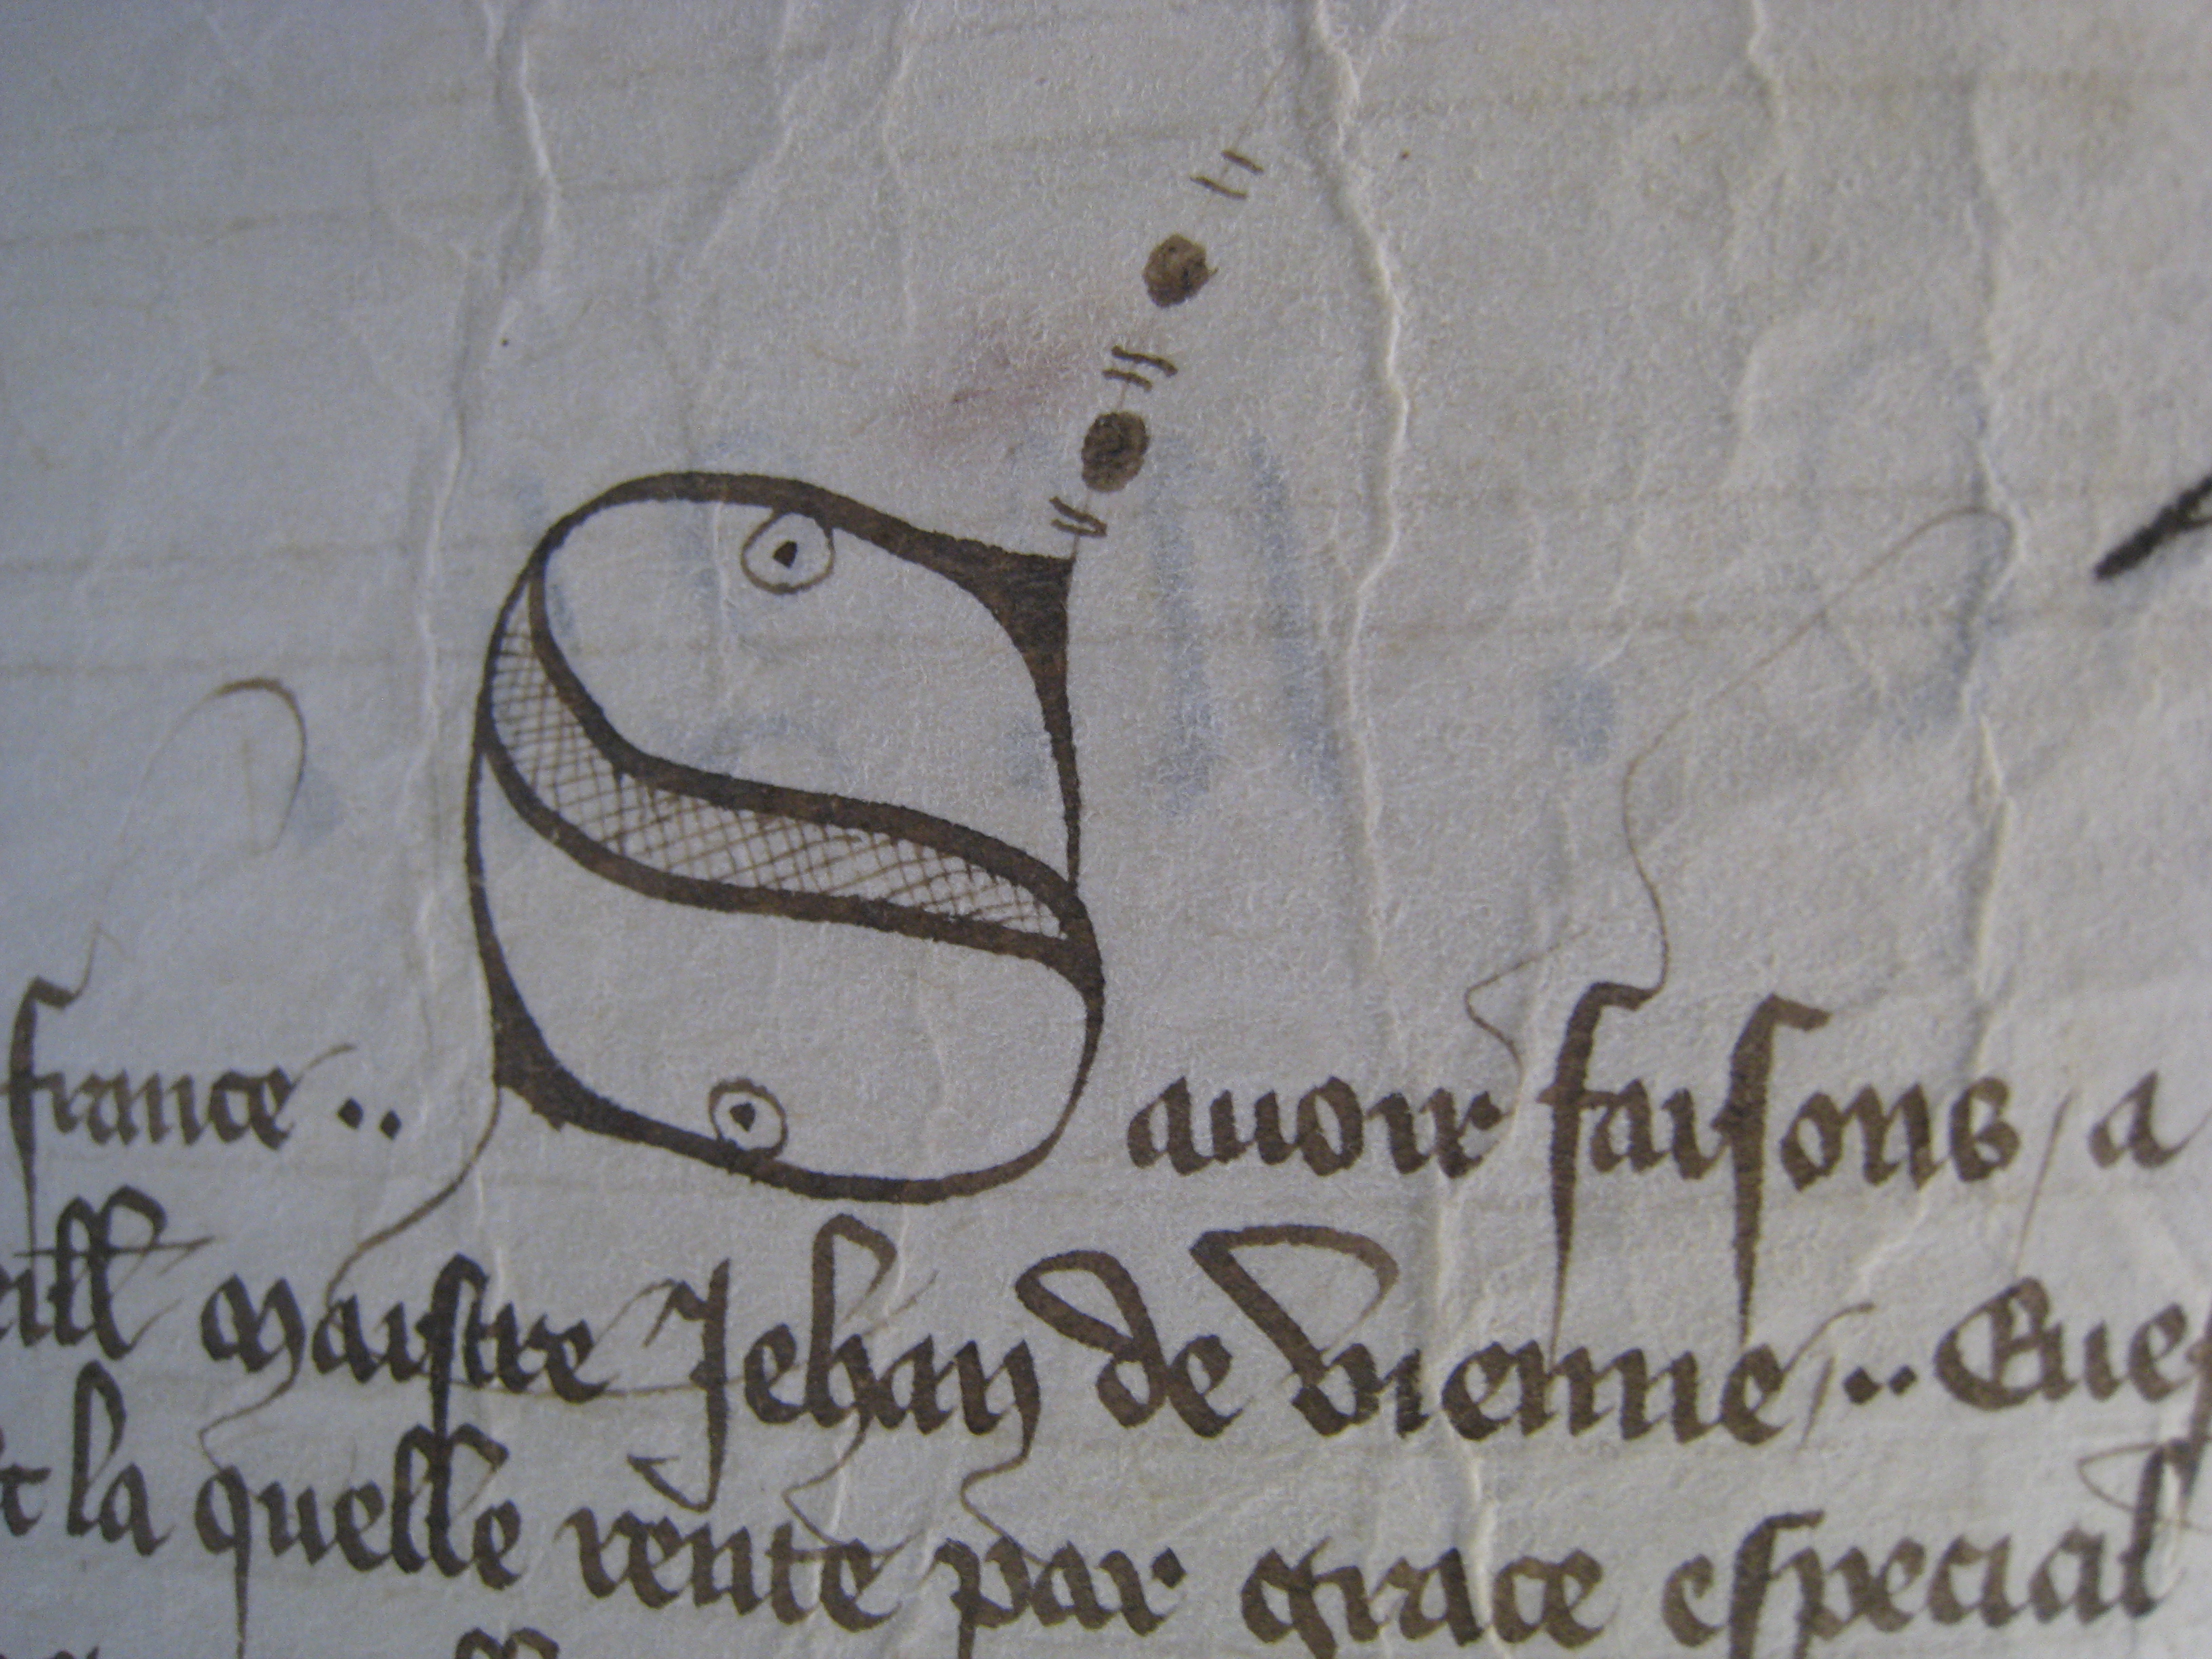 france .. Sauoir faisons / a
maistre Jehan de vienne .. Eues
la quelle rente par grace especial